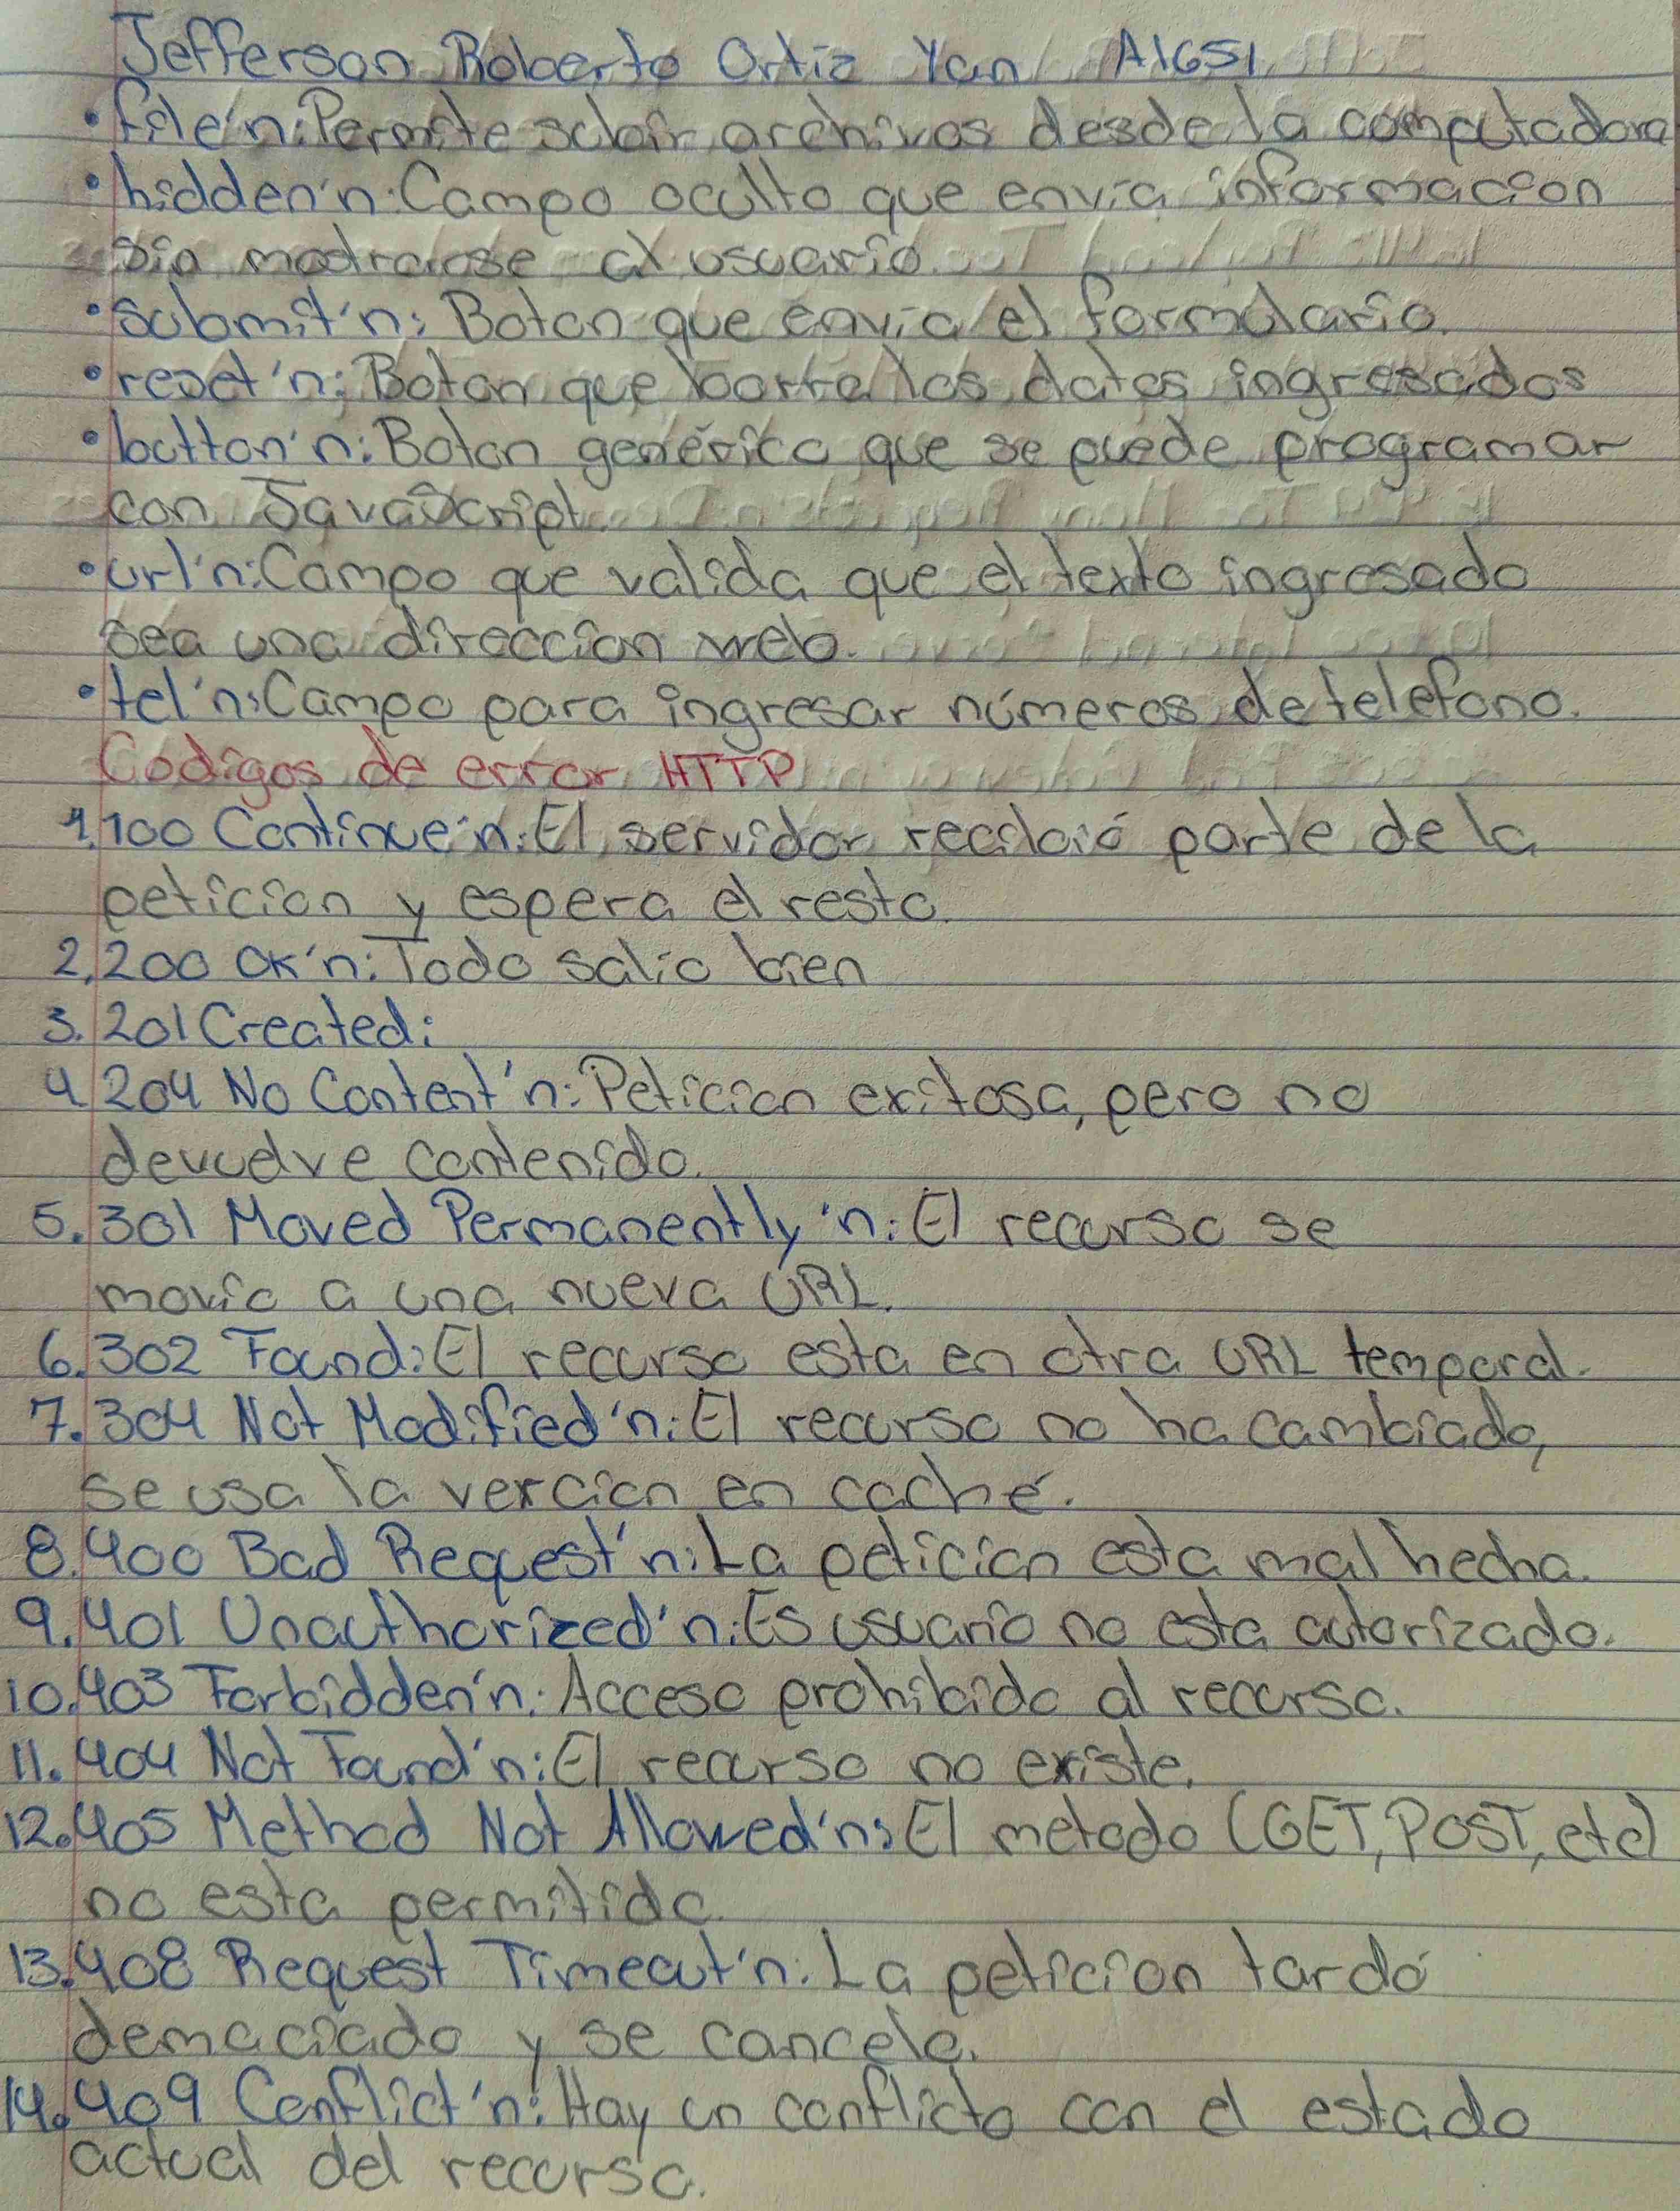 Jefferson Roberto Ortiz Yan A1651
• file'n: Permite subir archivos desde la computadora
• hidden'n: Campo oculto que envía informacion
sin mostrarse al usuario.
• submit'n: Boton que envía el formulario.
• reset'n: Boton que borra los datos ingresados
• button'n: Boton genérico que se puede programar
con JavaScript.
• url'n: Campo que valida que el texto ingresado
sea una direccion web.
• tel'n: Campo para ingresar números de telefono.
Codigos de error HTTP
1. 100 Continue'n: El servidor recibió parte de la
peticion y espera el resto.
2. 200 OK'n: Todo salio bien
3. 201 Created:
4. 204 No Content'n: Peticion exitosa, pero no
devuelve contenido.
5. 301 Moved Permanently'n: El recurso se
movio a una nueva URL.
6. 302 Found: El recurso esta en otra URL temporal.
7. 304 Not Modified'n: El recurso no ha cambiado,
se usa la vercion en caché.
8. 400 Bad Request'n: La peticion esta mal hecha.
9. 401 Unauthorized'n: Es usuario no esta autorizado.
10. 403 Forbidden'n: Acceso prohibido al recurso.
11. 404 Not Found'n: El recurso no existe.
12. 405 Method Not Allowed'n: El metodo (GET, POST, etc)
no esta permitido.
13. 408 Request Timeout'n: La peticion tardó
demaciado y se cancelo.
14. 409 Conflict'n: Hay un conflicto con el estado
actual del recurso.